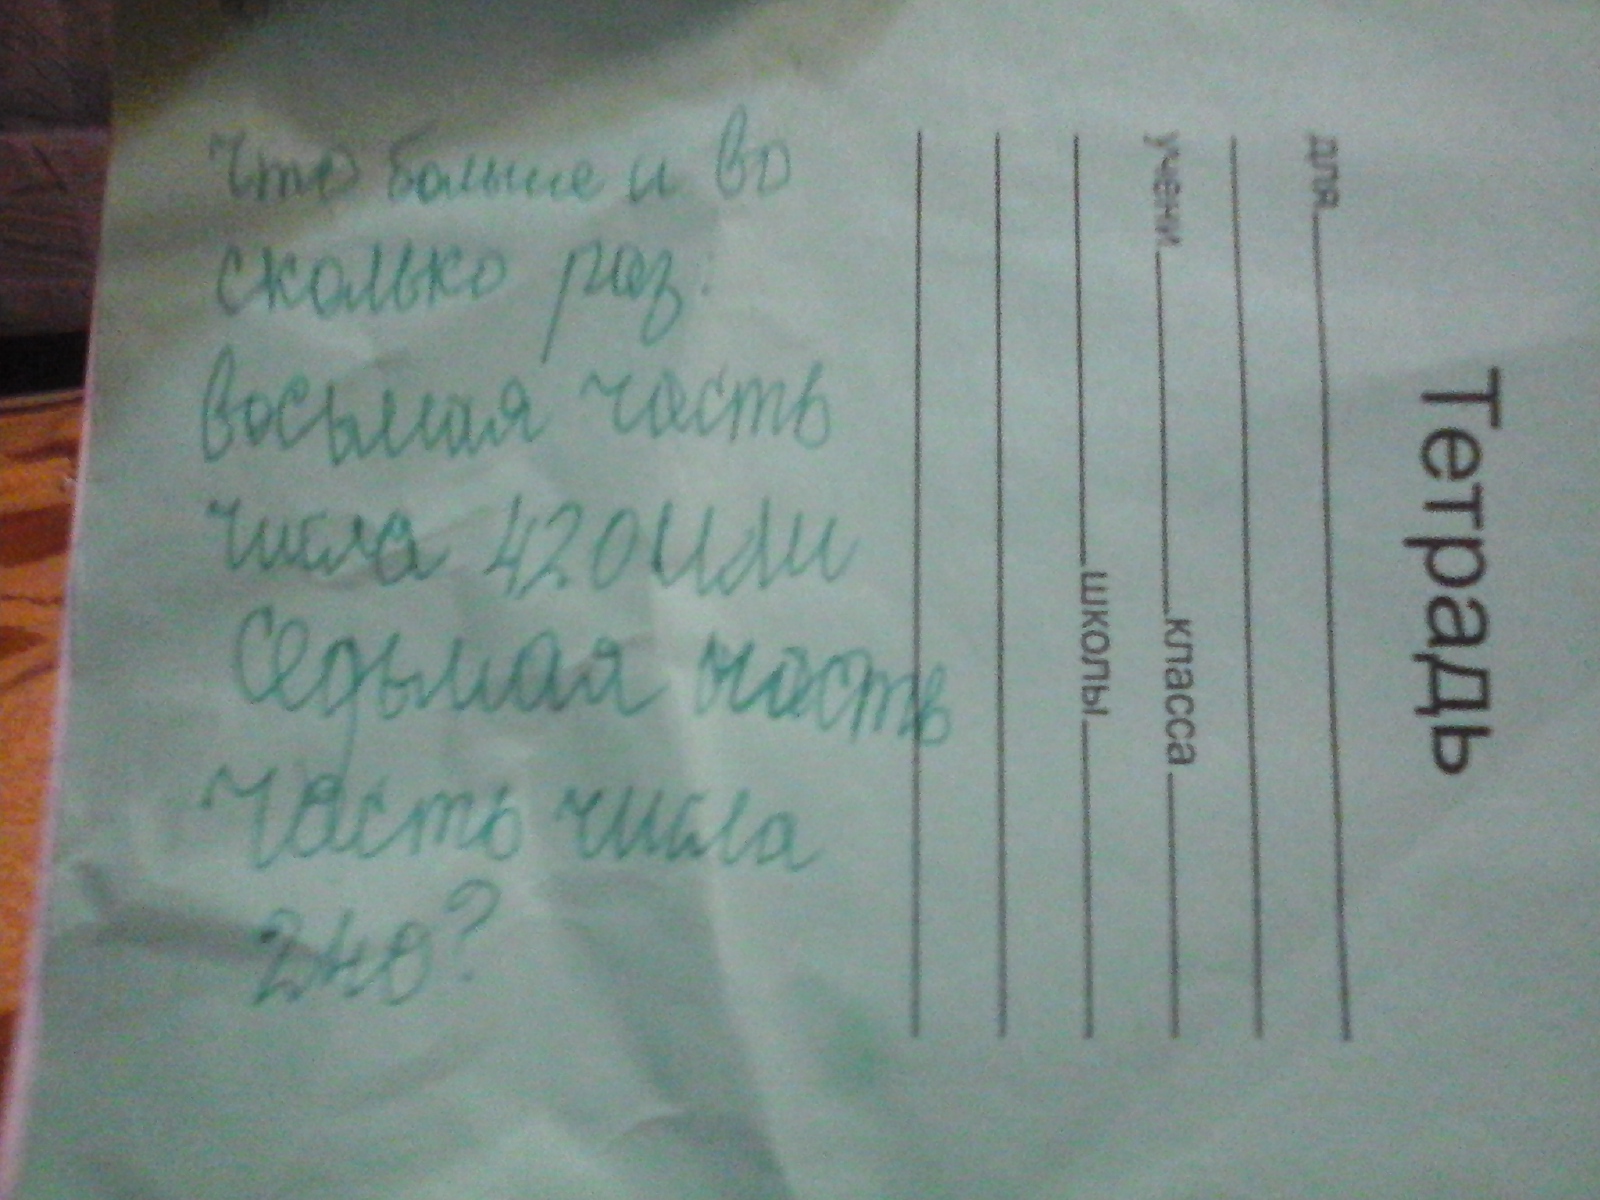 что больше и во
сколько раз:
восьмая часть
числа 420 или
седьмая часть
часть числа
240?
Тетрадь
для
учени класса
школы